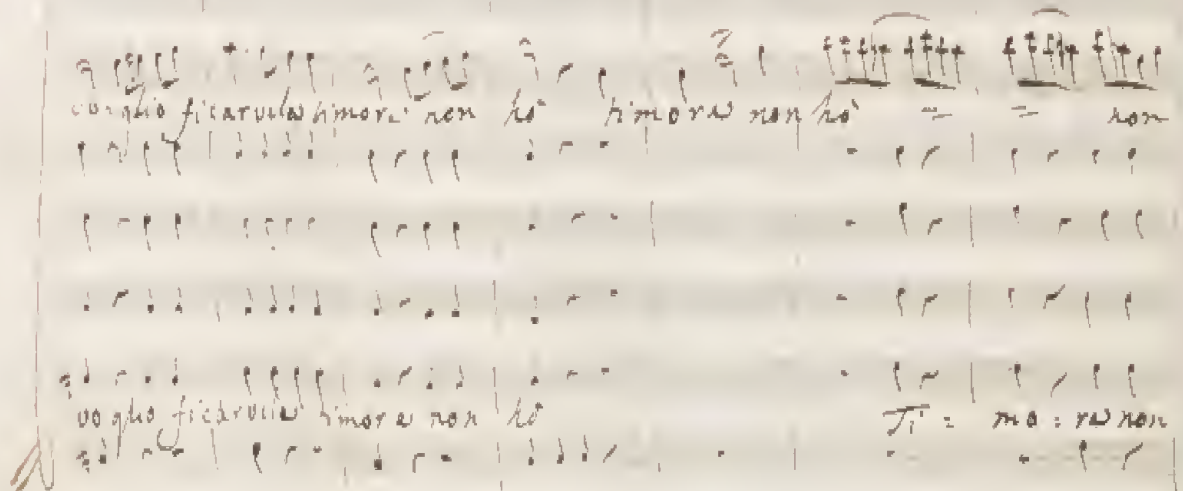 voglio ficarvila timore non hò timore non hò = = non
voglio ficarvila timore non hò Ti = mo = re non